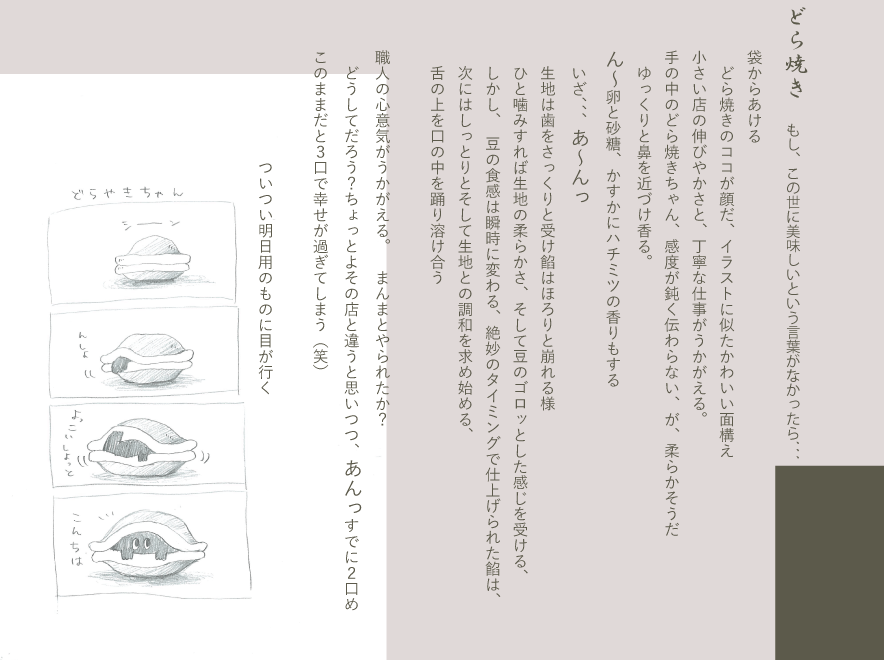 どら焼き　もし、この世に美味しいという言葉がなかったら、、、
袋からあける
どら焼きのココが顔だ、イラストに似たかわいい面構え
小さい店の伸びやかさと、丁寧な仕事がうかがえる。
手の中のどら焼きちゃん、感度が鈍く伝わらない、が、柔らかそうだ
ゆっくりと鼻を近づけ香る。
ん～卵と砂糖、かすかにハチミツの香りもする
いざ、、、あ～んっ
生地は歯をさっくりと受け餡はほろりと崩れる様
ひと噛みすれば生地の柔らかさ、そして豆のゴロッとした感じを受ける、
しかし、豆の食感は瞬時に変わる、絶妙のタイミングで仕上げられた餡は、
次にはしっとりとそして生地との調和を求め始める、
舌の上を口の中を踊り溶け合う
職人の心意気がうかがえる。　まんまとやられたか？
どうしてだろう？ちょっとよその店と違うと思いつつ、あんっすでに２口め
このままだと３口で幸せが過ぎてしまう（笑）
ついつい明日用のものに目が行く
どらやきちゃん
シーーン
んしょ
よっこいしょっと
こんちは